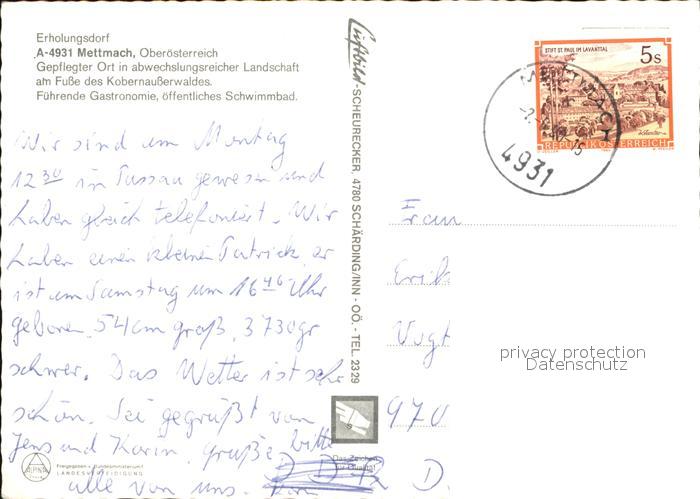 Erholungsdorf
A-4931 Mettmach, Oberösterreich
Gepflegter Ort in abwechslungsreicher Landschaft
am Fuße des Kobernaußerwaldes.
Führende Gastronomie, öffentliches Schwimmbad.
Wir sind am Montag
12 30 in Passau gewesen und
haben gleich telefoniert. Wir
haben einen kleinen Patrick, er
ist am Samstag um 16 46 Uhr
geboren, 54 cm groß, 3730 gr
schwer. Das Wetter ist sehr
schön. Sei gegrüßt von
Jens und Karin, grüße bitte
alle von uns.
Freigegeben v. Bundesministerium f.
LANDESVERTEIDIGUNG
ALPINA
Luftbild-SCHEURECKER, 4780 SCHÄRDING/INN - OÖ. - TEL. 2329
Das Zeichen
für Qualität
STIFT ST. PAUL IM LAVANTTAL
5 S
REPUBLIK ÖSTERREICH
METTMACH
4931
Frau
Erik
Vogt
970
D.
privacy protection
Datenschutz